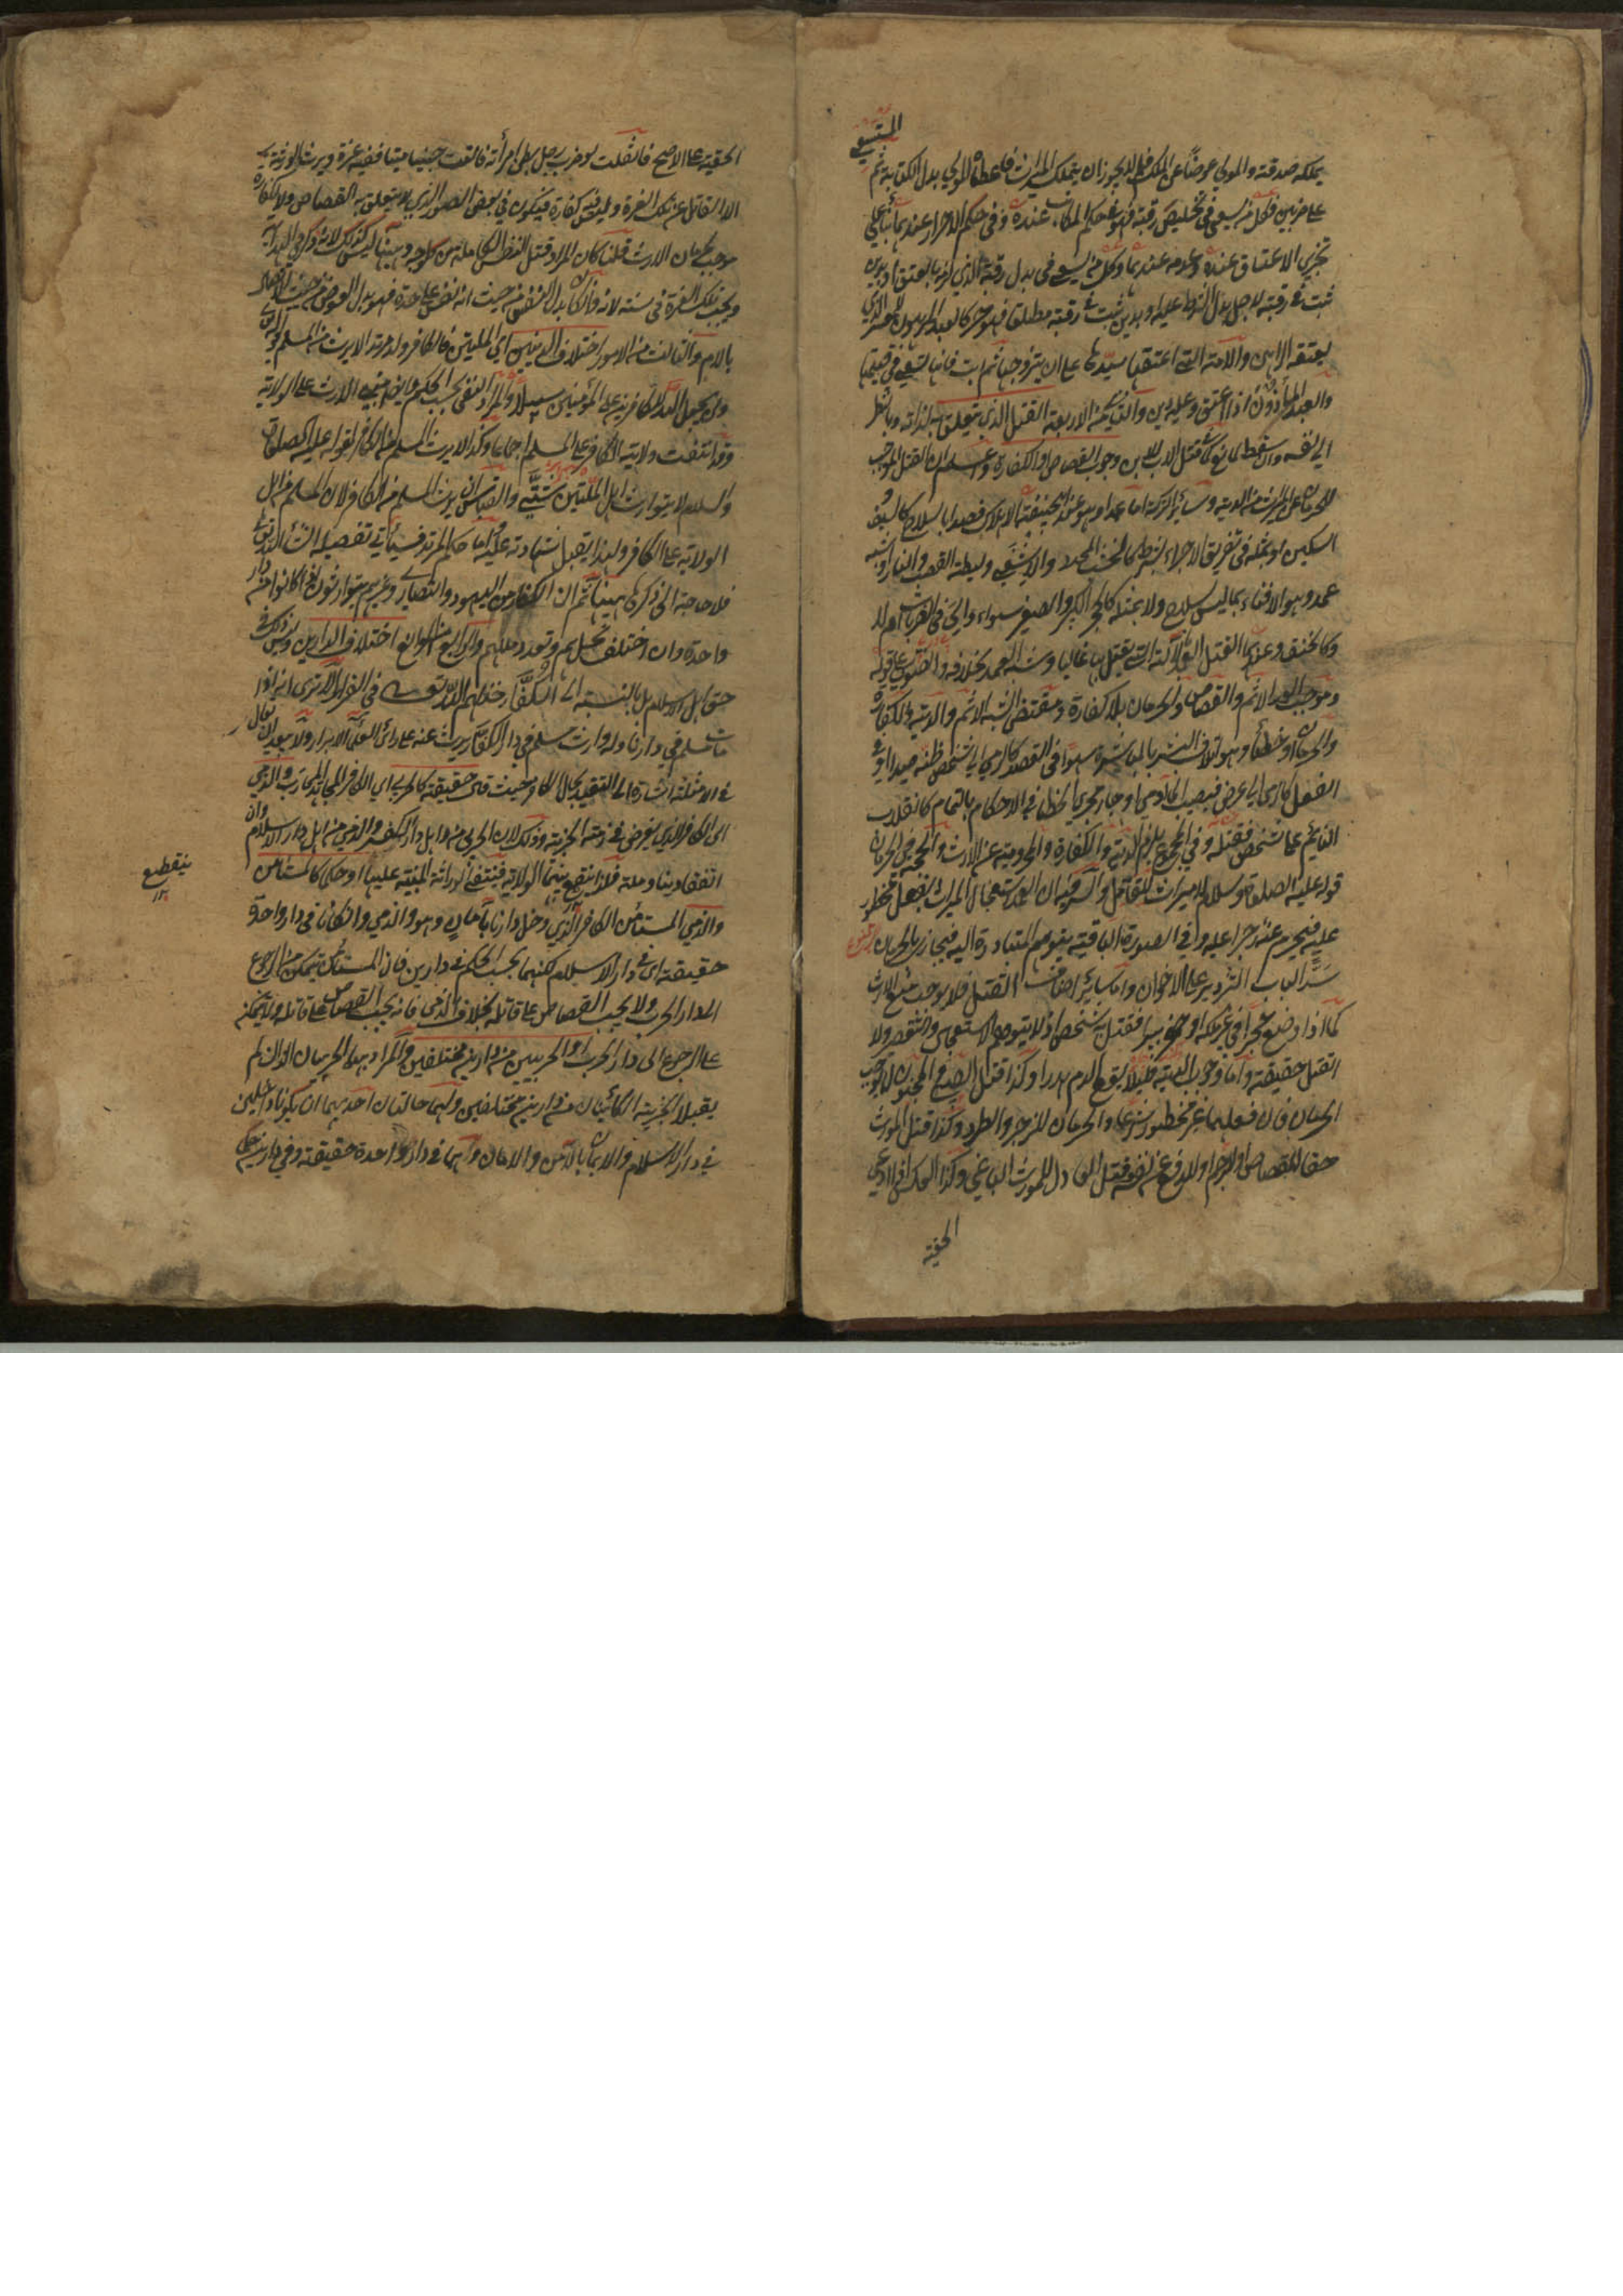 المستسعى
يملكه صدقته والمولى عوضا عن الملك فلا يجوز ان يتملك الميراث فاعطاه المولى بدل الكتابة ثم
على ضربين فكل من يسعى في تخليص رقبته فهو في حكم المكاتب عنده وفي حكم الاحرار عندهما بناء على
تجزي الاعتاق عنده وعدمه عندهما وكل من يسعى في بدل رقبته الذي لزمه بالعتق او بدين
ثبت في رقبته
يعتقه الراهن والامة التي اعتقها سيدها على ان يتزوجها ثم ابت فانها تسعى في قيمتها
والعبد المأذون اذا اعتق وعليه دين والثاني من الاربعة القتل الذي يتعلق به لذاته وبالنظر
الى نفسه وان سقط لمانع كقتل الاب الابن وجوب القصاص او الكفارة وعلم ان القتل الموجب
للحرمان عن الميراث من الدية وسائر التركة اما عمدا وهو عند ابي حنيفة الاهلاك قصدا بالسلاح كالسيف
السكين او بمثله في تفريق الاجزاء كالخشب المحدد والاشفى وليطة القصب والنار او شبه
عمد وهو الافناء بما ليس بسلاح ولا بمثله كالحجر الكبير والصغير سواء
وكالخنق وعندهما القتل بآلة التي يقتل بها غالبا وشبه العمد بخلافه والفتوى على قوله
وموجب العمد الاثم والقصاص والحرمان بلا كفارة ومقتضى الشبه الاثم والدية والكفارة
والحرمان او خطأ وهو اتلاف البشر بالمباشرة سهوا في القصد كالرمي الى شخص ظنه صيدا او في
الفعل كالرمي الى غرض فيصيب آدميا او جار مجرى الخطأ في الاحكام بالتمام كانقلاب
النائم على شخص فقتله وفي المجموع يلزم الدية والكفارة والحرمية عن الارث والحجة في الحرمان
قوله عليه الصلوة والسلام لا ميراث للقاتل والسر فيه ان العمد استعجال الميراث بفعل محظور
عليه فيحرم عنه زجرا عليه وفي الصورة الباقية يتوهم المتبادرة اليه فيجازى بالحرمان
سد الباب التزوير على الاخوان واما سائر اصناف القتل فلا يوجب منع الارث
كما اذا وضع حجرا في غير ملكه او حفر بيرا فقتل به شخص اذ لا يتوهم الاستعجال والتقصير ولا
القتل حقيقة واما وجوب الدية فلئلا يقع الدم هدرا وكذا قتل الصبي والمجنون لا يوجب
الحرمان فان فعلهما غير محظور شرعا والحرمان للزجر والطرد وكذا قتل المورث
حقا للقصاص او الرجم او للدفع عن نفسه فقتل العادل المورث الباغي وكذا العكس اذا ادعى
الحقية
الحقية على الاصح فان قلت لو ضرب رجل بطن امرأته فالقت جنينا ميتا ففيه غرة ويرث الورثة
الا القاتل عن تلك الغرة وليس فيه كفارة فيكون في بعض الصور الذي لا يتعلق به القصاص ولا كفارة
موجب لحرمان الارث قلنا كان المراد قتل النفس الكاملة من كل وجه وههنا ليس كذلك
ويجب تلك الغرة في سنة لانه وان كان بدل النفس من حيث انه نفس على حدة فهو بدل العضو من حيث الاتصال
بالام والثالث من الامور اختلاف الدينين اي الملتين فالكافر ولد مرتد لا يرث من المسلم
ولن يجعل الله للكافرين على المؤمنين سبيلا والمراد النفي بحسب الحكم وايضا مبنى الارث على الولاية
وقد انتفت ولاية الكافر على المسلم اجماعا وكذا لا يرث المسلم من الكافر لقوله عليه الصلوة
والسلام لا يتوارث اهل الملتين شتى والقياس ان يرث المسلم من الكافر لان المسلم من اهل
الولاية على الكافر ولهذا يقبل شهادته عليه واما حكم المرتد فسيأتي تفصيله ان شاء الله تعالى
فلا حاجة الى ذكره ههنا ثم ان الكفار من اليهود والنصارى وغيرهم يتوارثون اذا كانوا في دار
واحدة وان اختلف نحلهم وتعدد مللهم والرابع من الموانع اختلاف الدارين وليس ذلك في
حق اهل الاسلام بل بالنسبة الى الكفار خذلهم الله تعالى في الفرار الا ترى انه اذا
مات مسلم في دارنا وله وارث مسلم في دار الكفار يرث عنه
في الامثلة اشارة الى التقييد بحال الكافر حيث قال حقيقة كالحربي اي الكافر المجاهد المحارب والذمي
اي الكافر الذي يفرض في ذمته الجزية وذلك لان الحربي من اهل دار الكفر والذمي من اهل دار الاسلام وان
اتفقا دينا وملة فلذا ينقطع بينهما الولاية فينتفي الوراثة المبنية عليها او حكما كالمستأمن
ينقطع
والذمي المستأمن الكافر الذي دخل دارنا بامان وهو والذمي وان كانا في دار واحدة
حقيقة اي في دار الاسلام لكنهما بحسب الحكم في دارين فان المستأمن يتمكن من الرجوع
الى دار الحرب ولا يجب القصاص على قاتله بخلاف الذمي فانه يجب القصاص على قاتله ولا يمكنه
على الرجوع الى دار الحرب او الحربيين من دارين مختلفين والمراد بهما الحربيان اللذان لم
يقبلا الجزية الكائنان من دارين مختلفين ولهما حالتان احدهما ان يكونا داخلين
في دار الاسلام والايمان بالامن والامان وانهما في دار واحدة حقيقة وفي دارين حكما